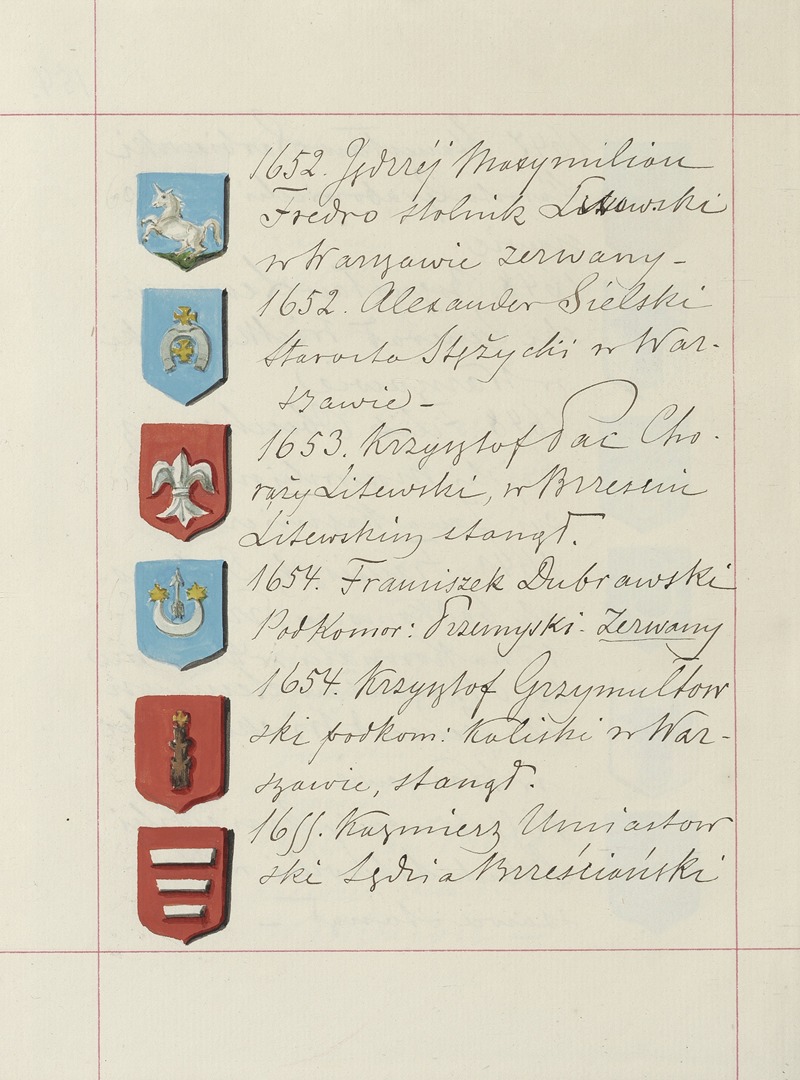 1652. Jędrzéj Maxymilian
Fredro stolnik Lwowski
w Warszawie zerwany -
1652. Alexander Sielski
Starosta Stężycki w War-
szawie -
1653. Krzysztof Pac Cho-
rąży Litewski, w Brzesciu
Litewskim stanął.
1654. Franciszek Dubrawski
Podkomor: Przemyski - Zerwany
1654. Krzysztof Grzymułtow
ski podkom: Kaliski w War-
szawie, stanął.
1655. Kazmierz Umiastow
ski Sędzia Brześciański